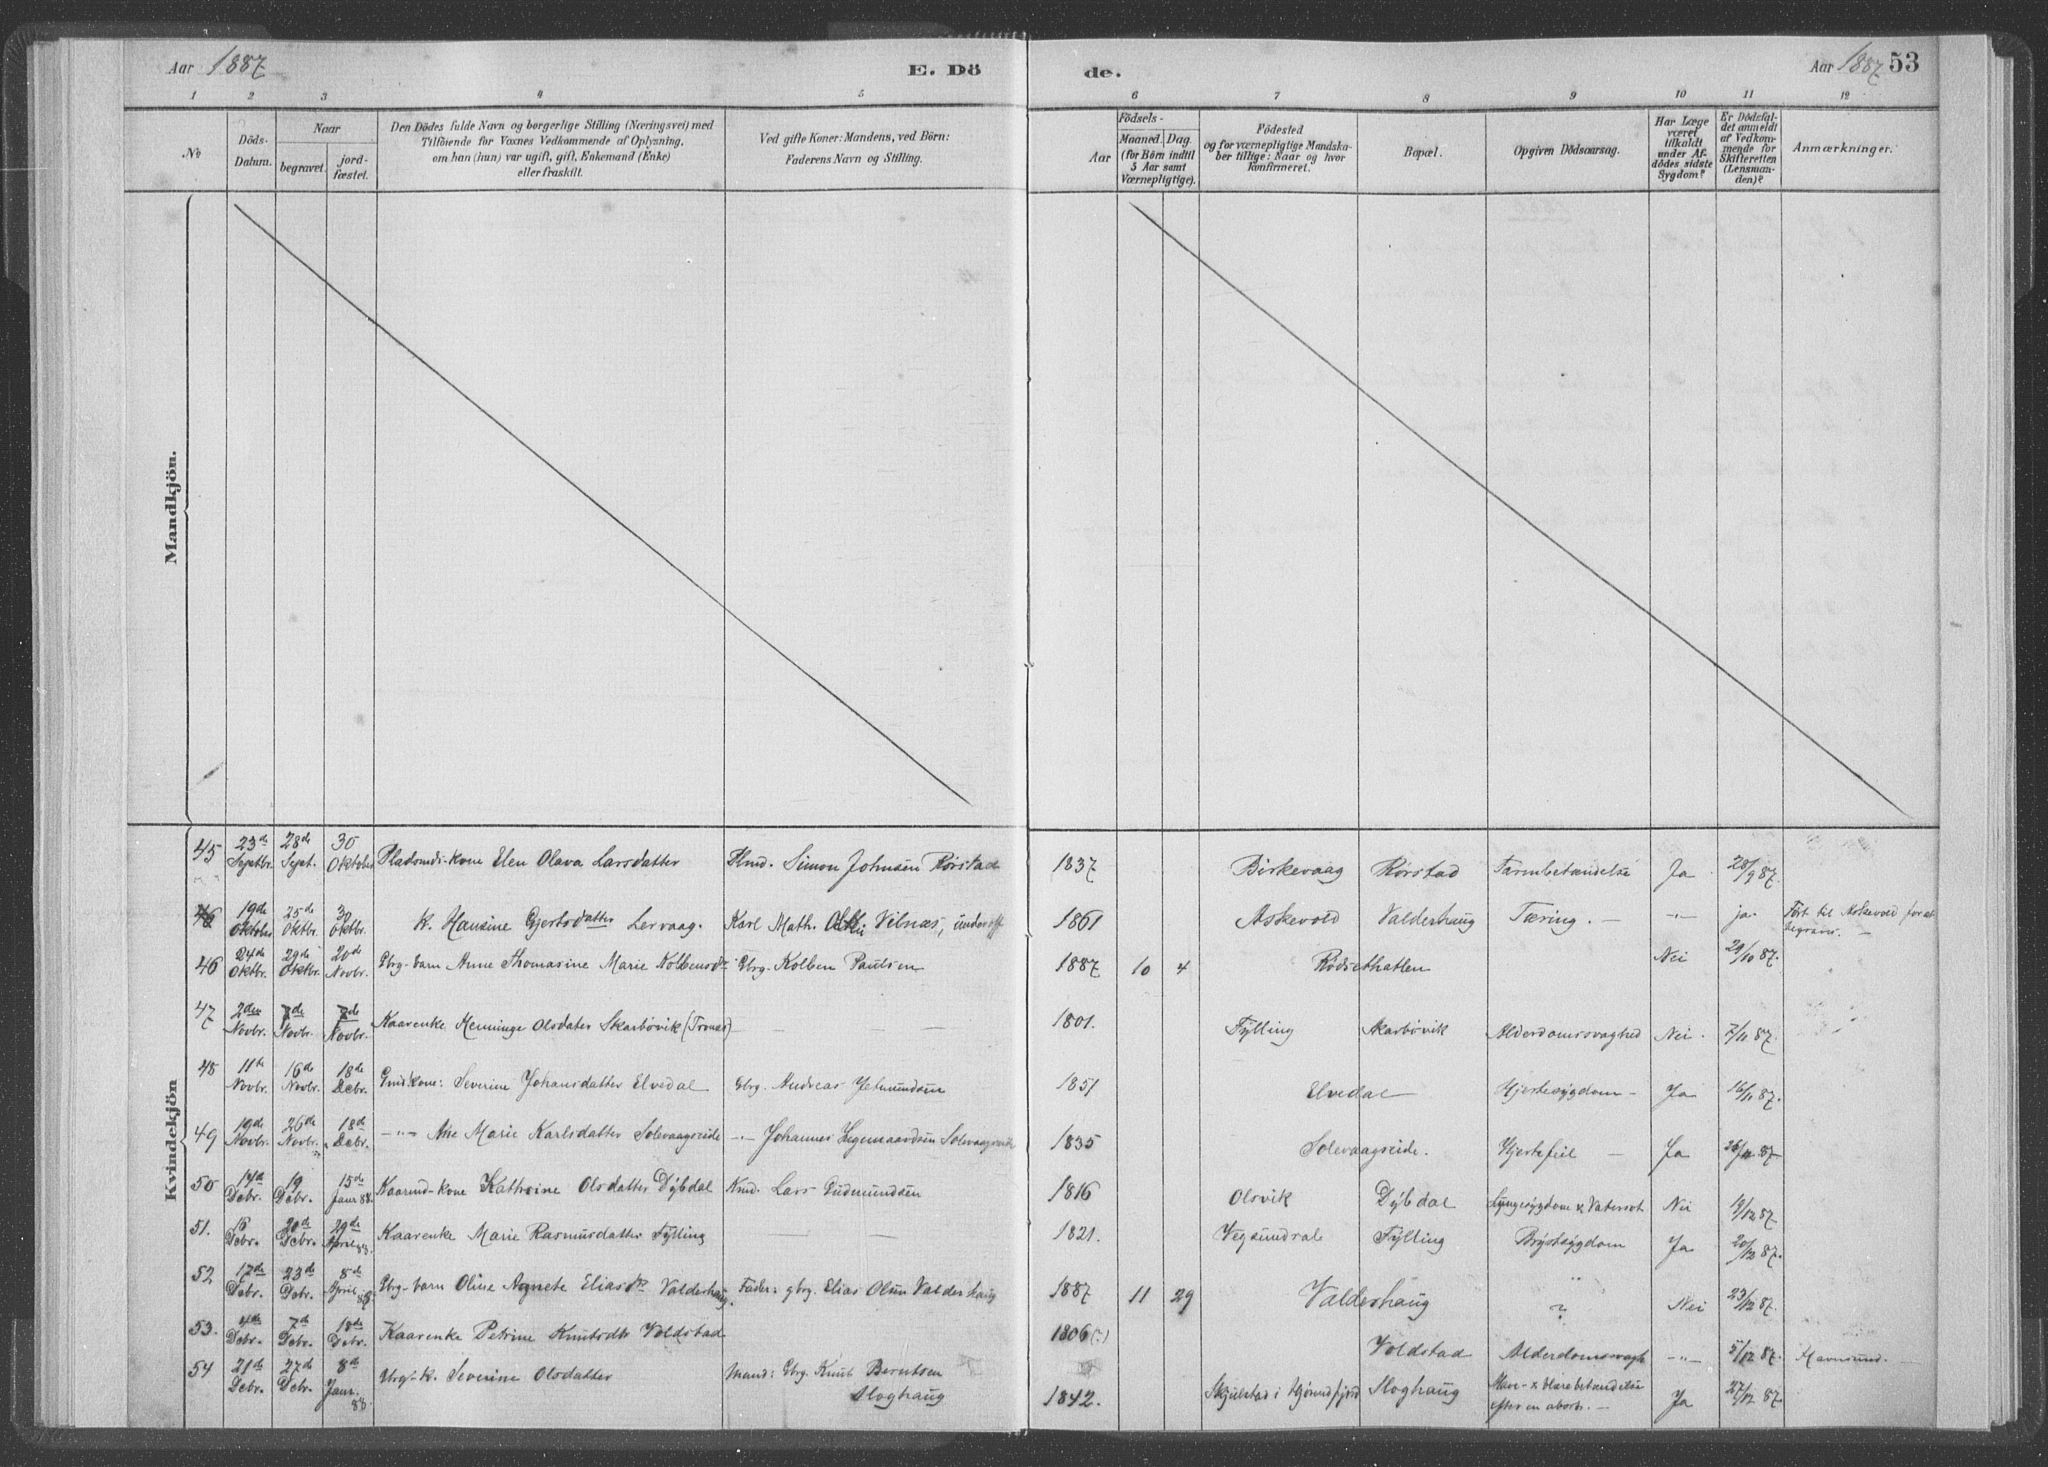 Aar 1887
E. Dö
de.
Aar 1887 53
1 2 3 4 5 6 7 8 9 10 11 12
No
Döds-
Datum.
Naar
begravet.
jord-
fæstet.
Den Dödes fulde Navn og borgerlige Stilling (Næringsvei) med
Tilföiende for Voxnes Vedkommende af Oplysning,
om han (hun) var ugift, gift, Enkemand (Enke)
eller fraskilt.
Ved gifte Koner: Mandens, ved Börn:
Faderens Navn og Stilling.
Födsels-
Aar
Maaned. Dag
(for Börn indtil
5 Aar samt
Værnepligtige).
Födested
og for værnepligtige Mandska-
ber tillige: Naar og hvor
konfirmeret.
Bopæl.
Opgiven Dödsaarsag.
Har Læge
været
tilkaldt
under Af-
dödes sidste
Sygdom?
Er Dödsfal-
det anmeldt
af Vedkom-
mende for
Skifteretten
(Lensman-
den)?
Anmærkninger.
Mandkjön.
Kvindekjön
45 23de Septbr. 28de Sept. 30 Oktober Pladsmds-kone Elen Olava Larsdatter Plmd. Simon Johnsen Rørstad 1837 Birkevaag Rørstad Tarmbetændelse Ja 28/9 87.
46 19de Oktober 25de Oktbr. 30 Oktbr. K. Hansine Gjertsdatter Lervaag. Karl Math. Vilnæs, underoff 1861 Askevold Valderhaug Tæring. — -"- ja. Ført til Askevold for at begraves. —
46 24de Oktbr. 29de Oktbr. 20de Novbr. Gbrg-barn Anne Thomasine Marie Kolbensdr Gbrg. Kolben Paulsen 1887 10 4 Rødsethatlen Nei 29/10 87.
47 2den Novbr. 7de Novbr. 7de Novbr. Kaarenke Henninge Olsdater Skarbøvik (Tronæs) — — 1801. Fylling Skarbøvik Alderdomssvaghed Nei. 7/11 87.
48 11te Novbr. 16de Novbr. 18de Debr. Gmdskone: Severine Johansdatter Elvedal Gbrg. Andreas Jetmundsen 1851 Elvedal Hjertesygdom - Ja 16/11 87.
49 19de Novbr. 26de Novbr. 18de Debr. -"- Ane Marie Karlsdatter Solevaagseide -"- Johannes Ingemaardsen Solevaagseide 1835 Solevaagseide. Hjertefeil — Ja 26/11 87
50 14de Debr. 19 Debr. 15de Janr 88. Kaarmd-kone Kathrine Olsdatter Dybdal Kmd. Lars Gudmundsen 1816 Olsvik Dybdal Lungesygdom & Vatersot Nei 19/12 87
51. 16 Debr. 20de Debr. 29de April 88. Kaarenke Marie Rasmusdatter Fylling — — 1821. Vegsundral Fylling Brystsygdom Ja 20/12 87.
52 17de Debr. 23de Debr. 8de April 88 Gbrg-barn Oline Agnete Eliasdr Valderhaug. Fader: gbrg. Elias Olsen Valderhaug 1887 11 29 Valderhaug ? Nei 23/12 87.
53. 4de Debr. 7de Debr. 18de Debr. Kaarenke Petrine Knutsdtr Voldstad 1806 (?) Voldstad Alderdomssvagh -"- 5/12 87.
54 21de Debr. 27de Debr. 8de Janr. 88 Gbrg-k. Severine Olsdatter Mand: Gbrg. Knut Berntsen Sloghaug 1842. Skjulstad i Hjørundfjord Sloghaug Mave- & blærebetændelse efter en abort. — Ja 27/12 87.